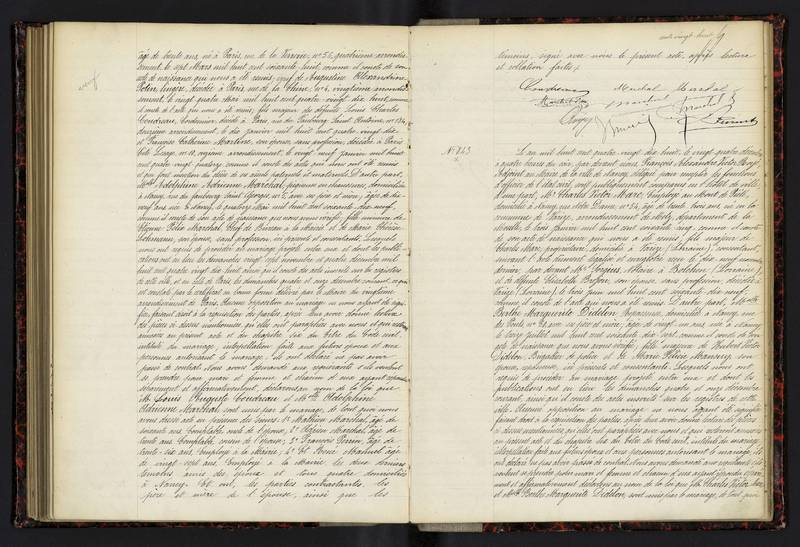 âgé de trente ans, né à Paris, rue de la Verrerie, n° 56, quatrième arrondis-
sement, le sept Mars mil huit cent soixante huit, comme il conste de son
acte de naissance qui nous a été remis, veuf de Augustine Alexandrine
décédée à Paris, rue de la Chine, n° 4, vingtième arrondis-
sement, le vingt quatre Mai mil huit cent quatre vingt dix huit, comme
il conste de l'acte qui nous a été remis, fils majeur des défunts Louis Charles
Coudreau, Cordonnier, décédé à Paris, rue du Faubourg Saint Antoine, n° 184,
douzième arrondissement, le dix janvier mil huit cent quatre vingt dix
et Françoise Catherine Martine, son épouse, sans profession, décédée à Paris
Cité Lesage, n° 10, arrondissement, le vingt neuf janvier mil huit
cent quatre vingt quatorze, comme il conste des actes qui nous ont été remis
et qui font mention du décès de ses aïeuls paternels et maternels. D'autre part,
Melle Adelphine Adrienne Maréchal, piqueuse en chaussures, domiciliée
à Nancy, rue du faubourg Saint Georges, n° 7, avec ses père et mère, âgée de dix
neuf ans, née à Nancy, le quatorze Mai mil huit cent soixante dix neuf,
comme il conste de son acte de naissance que nous avons vérifié, fille mineure de
Etienne Félix Maréchal, Chef de Bureau à la Mairie et de Marie Thérèse
son épouse, sans profession, ici présents et consentants. Lesquels
nous ont requis de procéder au mariage projeté entre eux et dont les publi-
cations ont eu lieu les dimanches vingt sept novembre et quatre décembre mil
huit cent quatre vingt dix huit ainsi qu'il conste des actes inscrits sur les registres
de cette ville, et en celle de Paris les dimanches quatre et onze décembre courant, ce qui
est constaté par le certificat en bonne forme délivré par le Maire du vingtième
arrondissement de Paris. Aucune opposition au mariage ne nous ayant été signi-
fiée, faisant droit à la réquisition des parties, après leur avoir donné lecture
des pièces ci-dessus mentionnées, qu'elles ont paraphées avec nous et qui resteront
annexées au présent acte et du chapitre six du Titre du Code civil,
intitulé du mariage, interpellation faite aux futurs époux et aux
personnes autorisant le mariage, ils ont déclaré ne pas avoir
passé de contrat. Nous avons demandé aux requérants s'ils veulent
se prendre pour mari et femme et chacun d'eux ayant répondu
séparément et affirmativement, déclarons au nom de la loi que
M. Louis Auguste Coudreau et Melle Adelphine
Adrienne Maréchal, sont unis par le mariage, de tout quoi nous
avons dressé acte en présence des Sieurs: 1° Mathieu Maréchal, âgé de
soixante ans, Comptable, oncle de l'épouse, 2° Maréchal, âgé de
trente ans, Comptable, cousin de l'épouse; 3° François Perrin, âgé de
trente-six ans, Employé à la Mairie, 4° et René Machuel âgé
de vingt sept ans, Employé à la Mairie, les deux derniers
témoins amis des époux et tous quatre domiciliés
à Nancy. Et ont, les parties contractantes, les
père et mère de l'épouse, ainsi que les
témoins, signé avec nous le présent acte, après lecture
et collation faites.
Coudreau Maréchal Maréchal
N° 843
L'an mil huit cent quatre vingt dix huit, le vingt quatre décembre
à quatre heures du soir, par devant nous, François Alexandre Victor
Adjoint au Maire de la ville de Nancy, délégué pour remplir les fonctions
d'officier de l'état civil, ont publiquement comparu en l'hôtel de ville,
d'une part, M. Charles Victor Employé au dépôt de
domicilié à Nancy, rue Notre Dame, n° 54, âgé de trente trois ans, né en la
commune de Varize, arrondissement de Metz, département de la
Moselle, le trois janvier mil huit cent soixante cinq, comme il conste
de son acte de naissance qui nous a été remis, fils majeur de
Charles propriétaire, domicilié à Varize (Lorraine), consentant,
suivant l'acte dûment légalisé et enregistré reçu le dix neuf novembre
dernier par devant Me Notaire à Bolchen (Lorraine),
et de défunte Elisabeth son épouse, sans profession, décédée à
Varize (Lorraine), le trois juin mil huit cent soixante dix neuf,
comme il conste de l'acte qui nous a été remis. D'autre part, Melle
Berthe Marguerite Diddlon, Repasseuse, domiciliée à Nancy, rue
des Ponts n° avec ses père et mère, âgée de vingt un ans, née à Nancy
le juillet mil huit cent soixante dix sept, comme il conste de son
acte de naissance que nous avons vérifié, fille majeure de Hubert Victor
Diddlon, Brigadier de police et de Marie son
épouse, repasseuse, ici présents et consentants. Lesquels nous ont
requis de procéder au mariage projeté entre eux et dont les
publications ont eu lieu les dimanches quatre et onze décembre
courant, ainsi qu'il conste des actes inscrits sur les registres de cette
ville. Aucune opposition au mariage ne nous ayant été signifiée
faisant droit à la réquisition des parties, après leur avoir donné lecture des pièces
ci-dessus mentionnées, qu'elles ont paraphées avec nous et qui resteront annexées
au présent acte et du chapitre six du Titre du Code civil, intitulé du mariage,
interpellation faite aux futurs époux et aux personnes autorisant le mariage, ils
ont déclaré ne pas avoir passé de contrat. Nous avons demandé aux requérants s'ils
veulent se prendre pour mari et femme et chacun d'eux ayant répondu séparé-
ment et affirmativement, déclarons au nom de la loi que M. Charles Victor
et Melle Berthe Marguerite Diddlon, sont unis par le mariage, de tout quoi